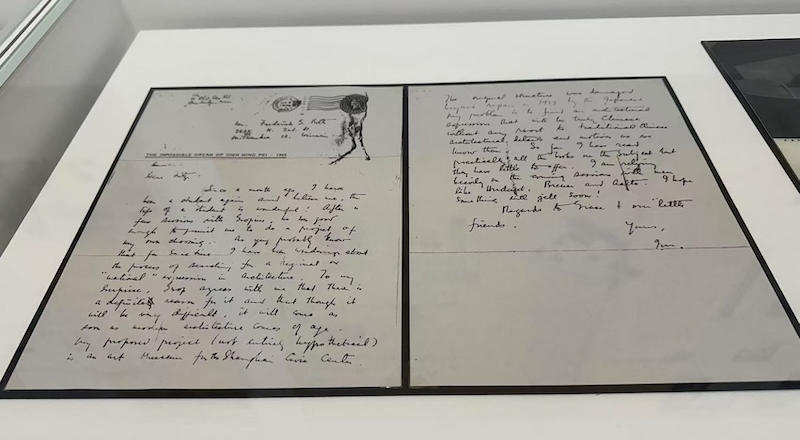 Mr. Frederick G. Roth
Milwaukee
THE IMPOSSIBLE DREAM OF IEOH MING PEI - 1946
Dear Fritz,
Since a month ago I have
been a student again and believe me, the
life of a student is wonderful. After a
few sessions with Gropius, he was good
enough to permit me to do a project of
my own choosing. As you probably know
that for some time I have been wondering about
the process of searching for a regional or
"national" expression in architecture. To my
surprise, Grop agrees with me that there is
a definite reason for it and that though it
will be very difficult, it will come as
soon as modern architecture comes of age.
My proposed project (not entirely hypothetical)
is an art Museum for the Shanghai Civic Center.
The original structure was damaged
beyond repair in by the Japanese
My problem is to find an architectural
expression that will be truly Chinese
without any resort to traditional Chinese
architectural details and motives as we
know them. So far I have read
practically all the books on the subject but
they have little to offer. I am relying
heavily on the coming sessions with men
like Hudnut, Breuer and Aalto. I hope
something will gell soon!
Regards to Grace & our little
friends.
Yours,